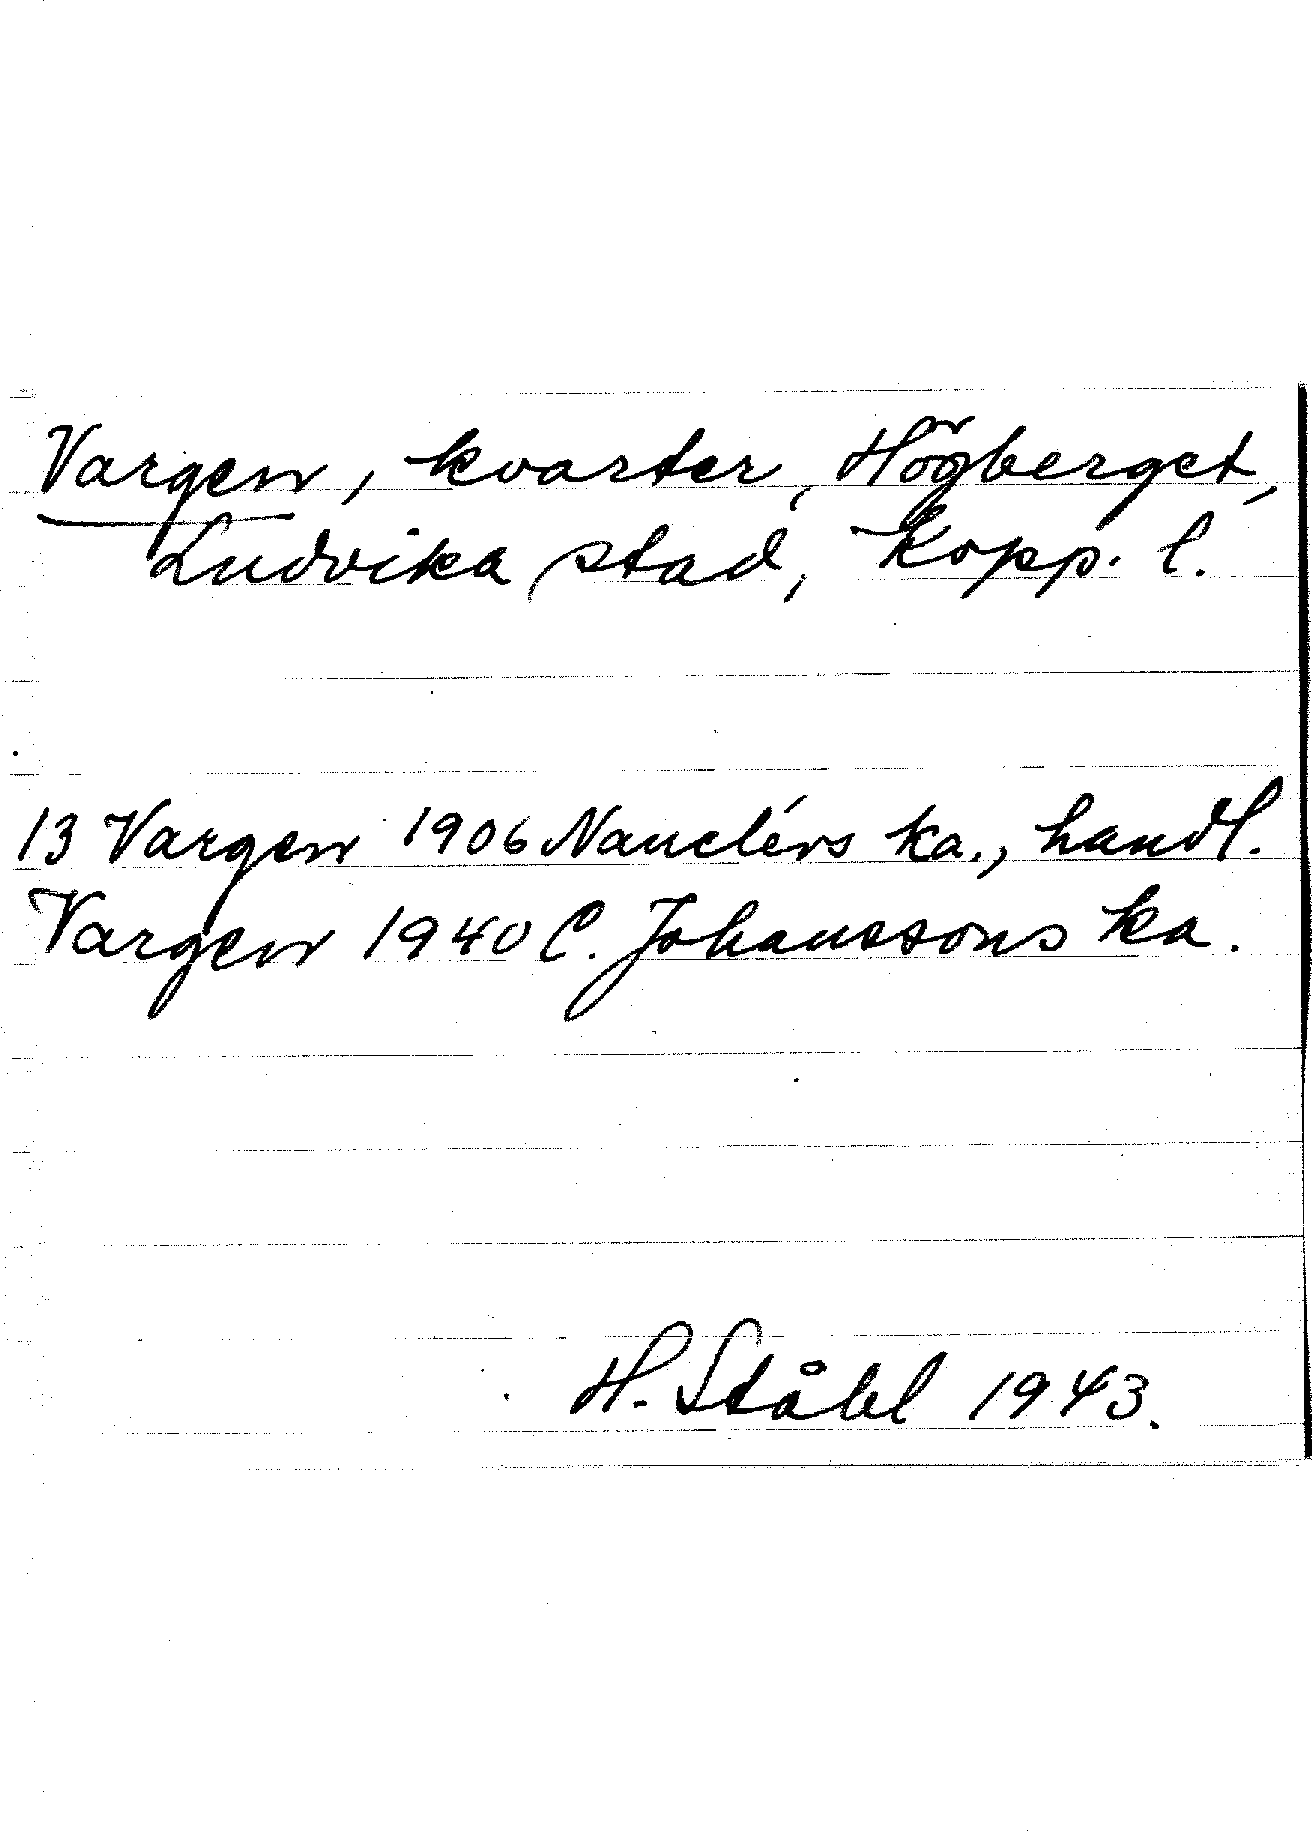 Vargen, kvarter, Högberget,
Ludvika stad, Kopp. l.
13 Vargen 1906 Nauclérs ka., handl.
Vargen 1940 C. Johanssons ka.
H. Ståhl 1943.